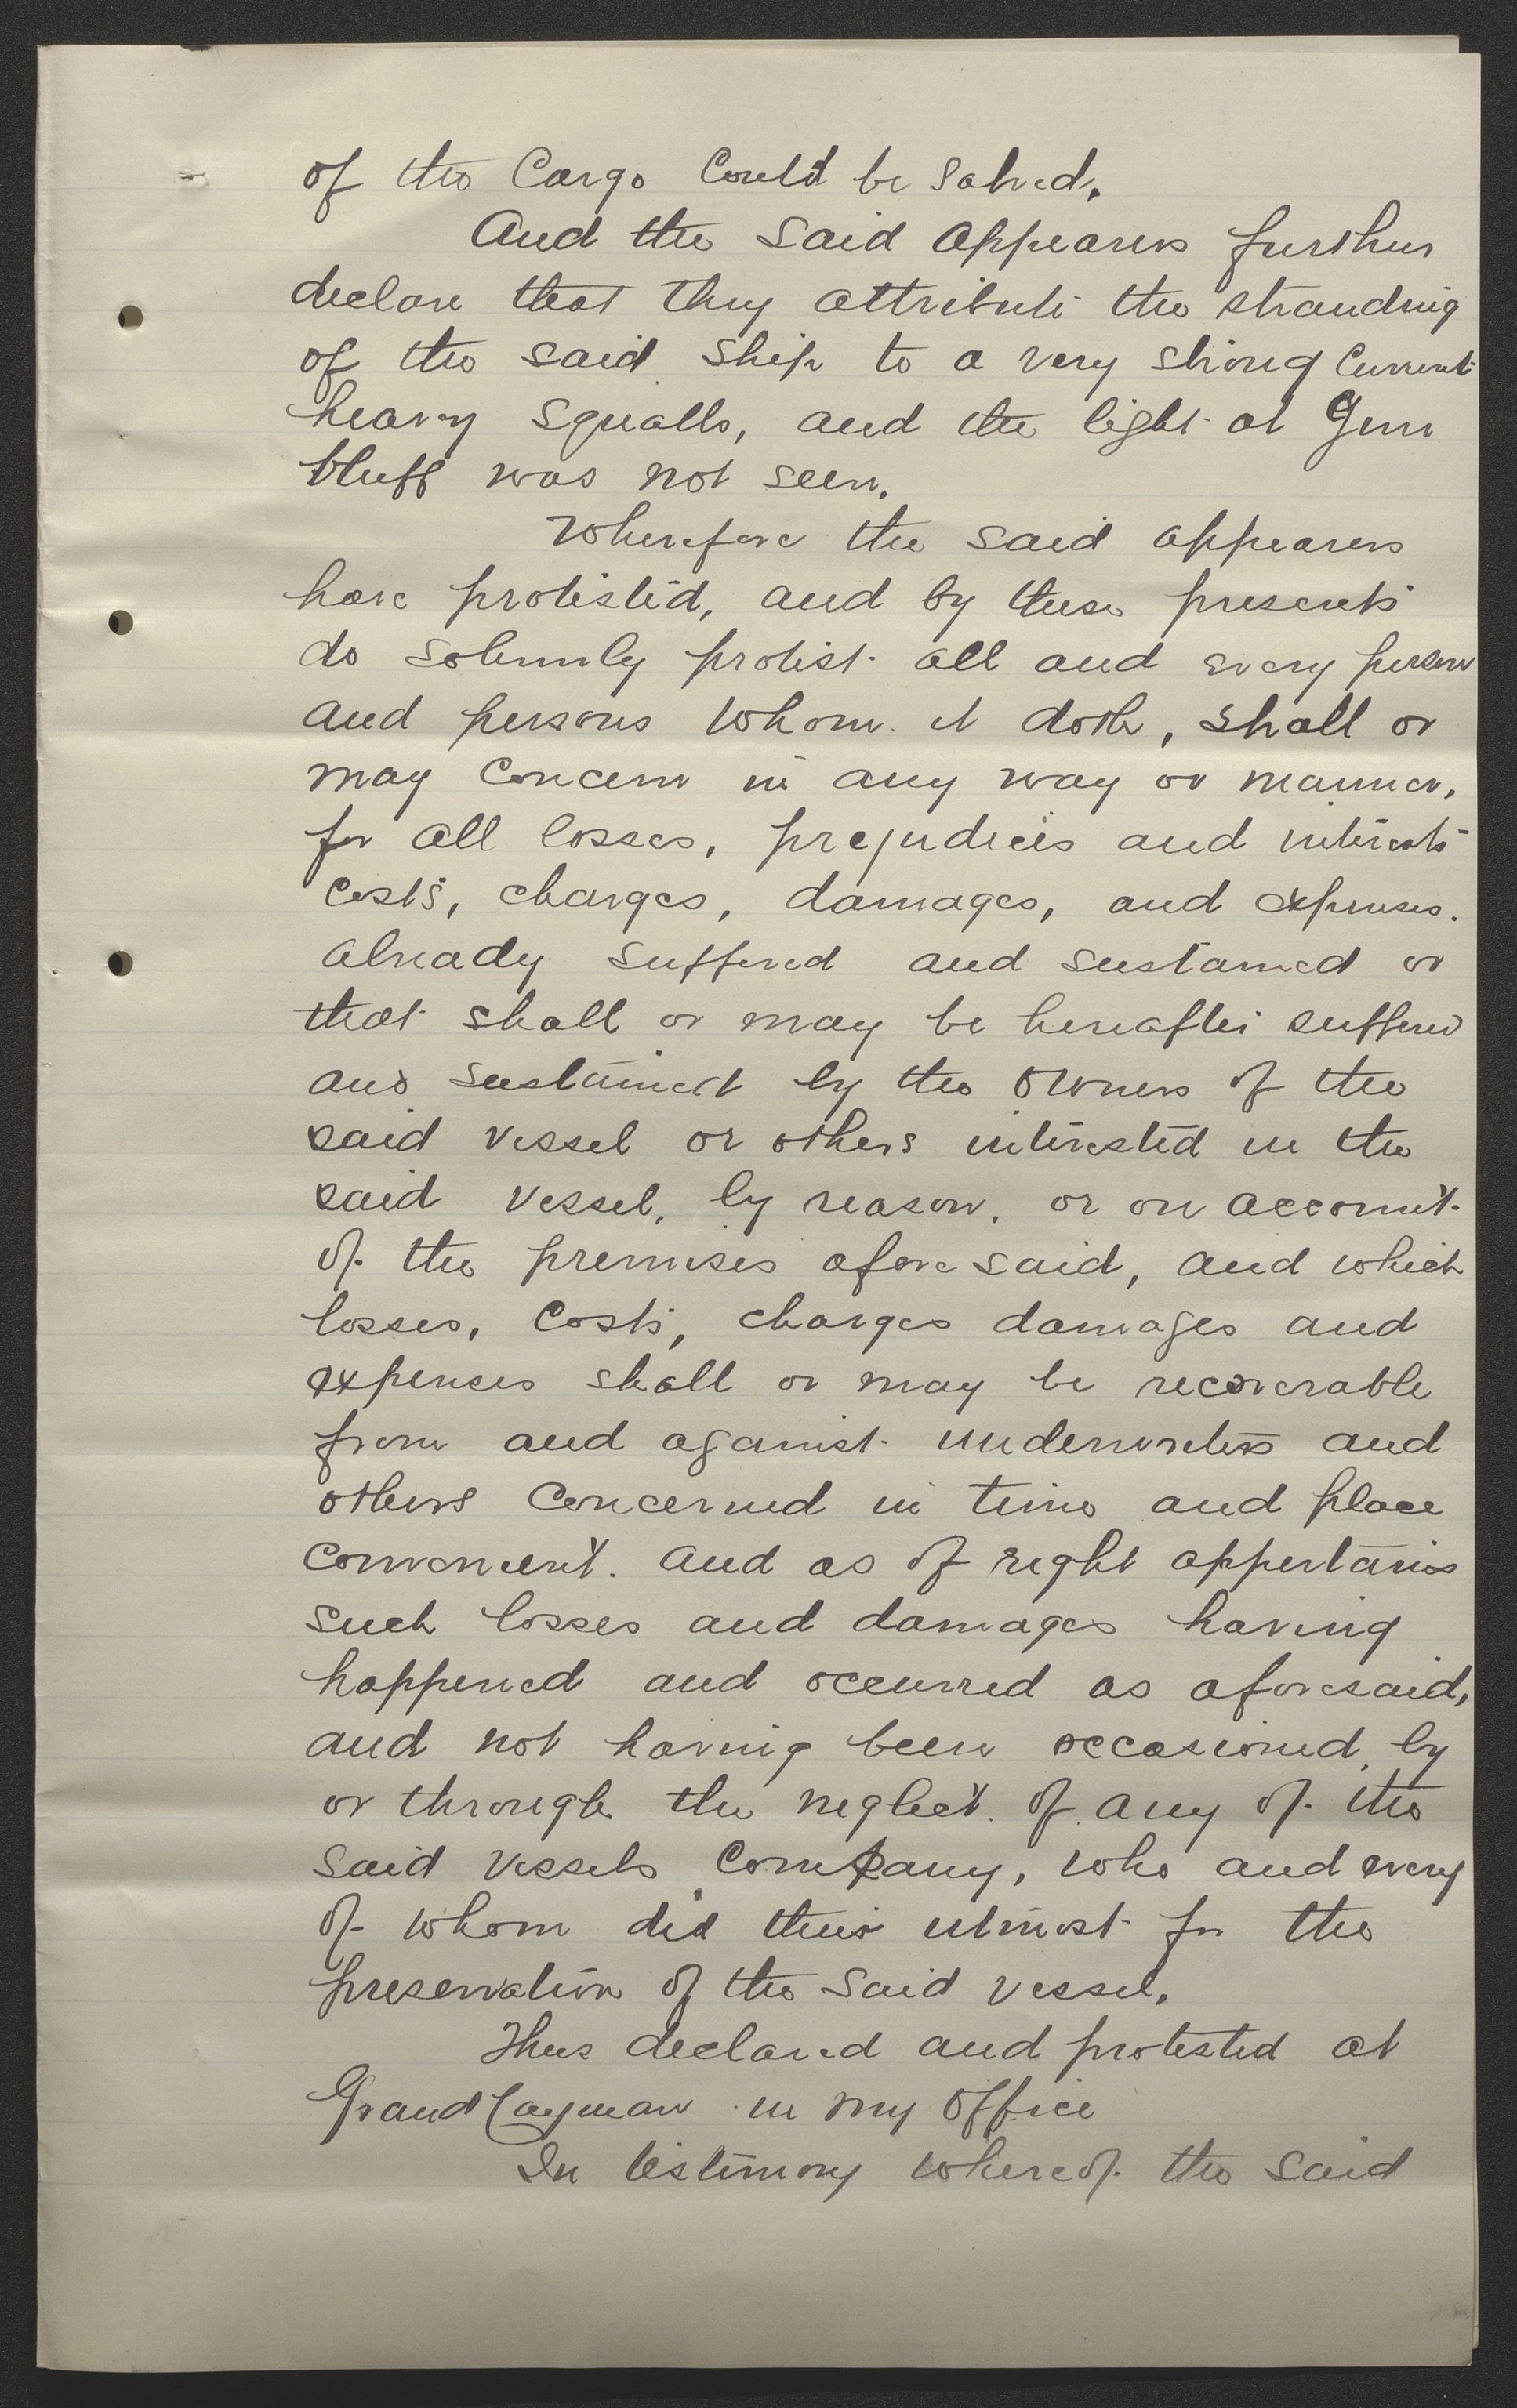 of the Cargo Could be Salved.
And the Said Appearers further
declare that they attribute the stranding
of the said Ship to a very strong Current
heavy Squalls, and the light at Gun
bluff was not seen.
Wherefore the said appearers
have protested, and by these presents
do solemnly protest all and every person
and persons whom it doth, shall or
may concern in any way or manner,
for all losses, prejudices and interests
Costs, charges, damages, and expenses.
already suffered and sustained or
that shall or may be hereafter suffered
and sustained by the Owners of the
said vessel or others interested in the
said vessel, by reason, or on account
of the premises aforesaid, and which
losses, Costs, charges damages and
expenses shall or may be recoverable
from and against underwriters and
others Concerned in time and place
convenient. and as of right appertains
such losses and damages having
happened and occurred as aforesaid,
and not having been occasioned by
or through the neglect of any of the
said vessels Company, who and every
of whom did their utmost for the
preservation of the said vessel.
Thus declared and protested at
Grand Cayman in my Office
In testimony whereof the said